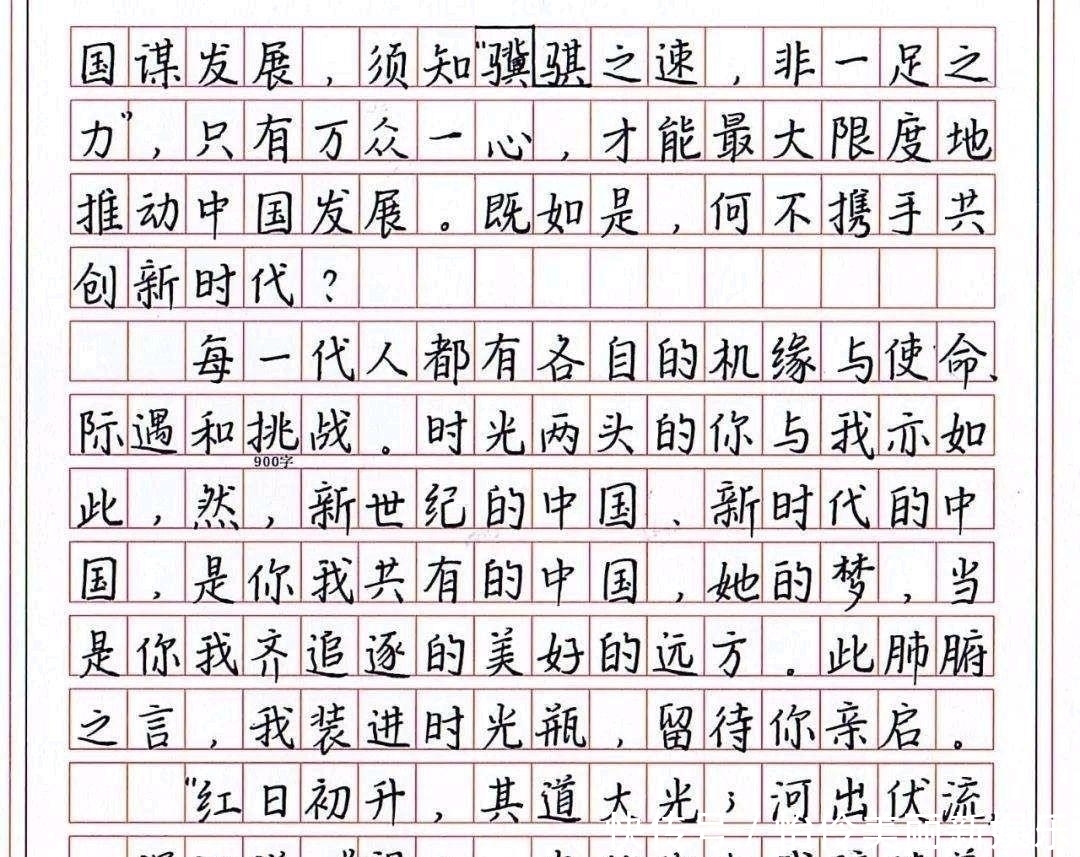 国谋发展，须知“骥骐之速，非一足之
力”，只有万众一心，才能最大限度地
推动中国发展。既如是，何不携手共
创新时代？
每一代人都有各自的机缘与使命、
际遇和挑战。时光两头的你与我亦如
900字
此，然，新世纪的中国、新时代的中
国，是你我共有的中国，她的梦，当
是你我齐追逐的美好的远方。此肺腑
之言，我装进时光瓶，留待你亲启。
“红日初升，其道大光；河出伏流